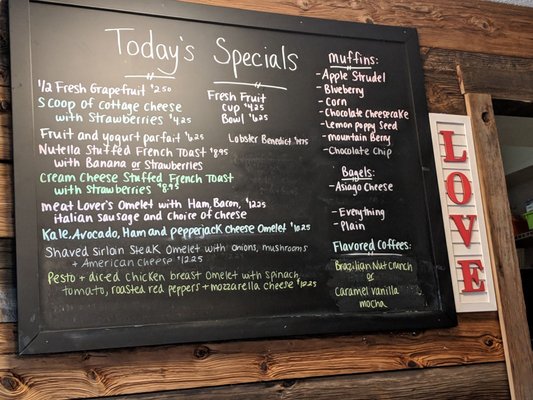 Today's Specials
1/2 Fresh Grapefruit $2.50
Scoop of cottage cheese
with strawberries $4.25
Fresh Fruit
Cup $4.25
Bowl $6.25
Fruit and yogurt parfait $6.25
Lobster Benedict $14.75
Nutella Stuffed French Toast $8.95
with Banana or Strawberries
Cream Cheese Stuffed French Toast
with strawberries $8.95
meat Lover's Omelet with Ham, Bacon, $12.25
italian sausage and choice of cheese
Kale, Avocado, Ham and pepperjack cheese Omelet $10.25
Shaved Sirloin Steak Omelet with onions, mushrooms
+ American cheese $12.25
Pesto + diced chicken breast Omelet with spinach,
tomato, roasted red peppers + mozzarella cheese $12.25
Muffins:
- Apple Strudel
- Blueberry
- Corn
- Chocolate Cheesecake
- Lemon poppy Seed
- mountain Berry
- Chocolate Chip
Bagels:
- Asiago Cheese
- Everything
- Plain
Flavored Coffees:
Brazilian Nut Crunch
or
Caramel vanilla
mocha
LOVE